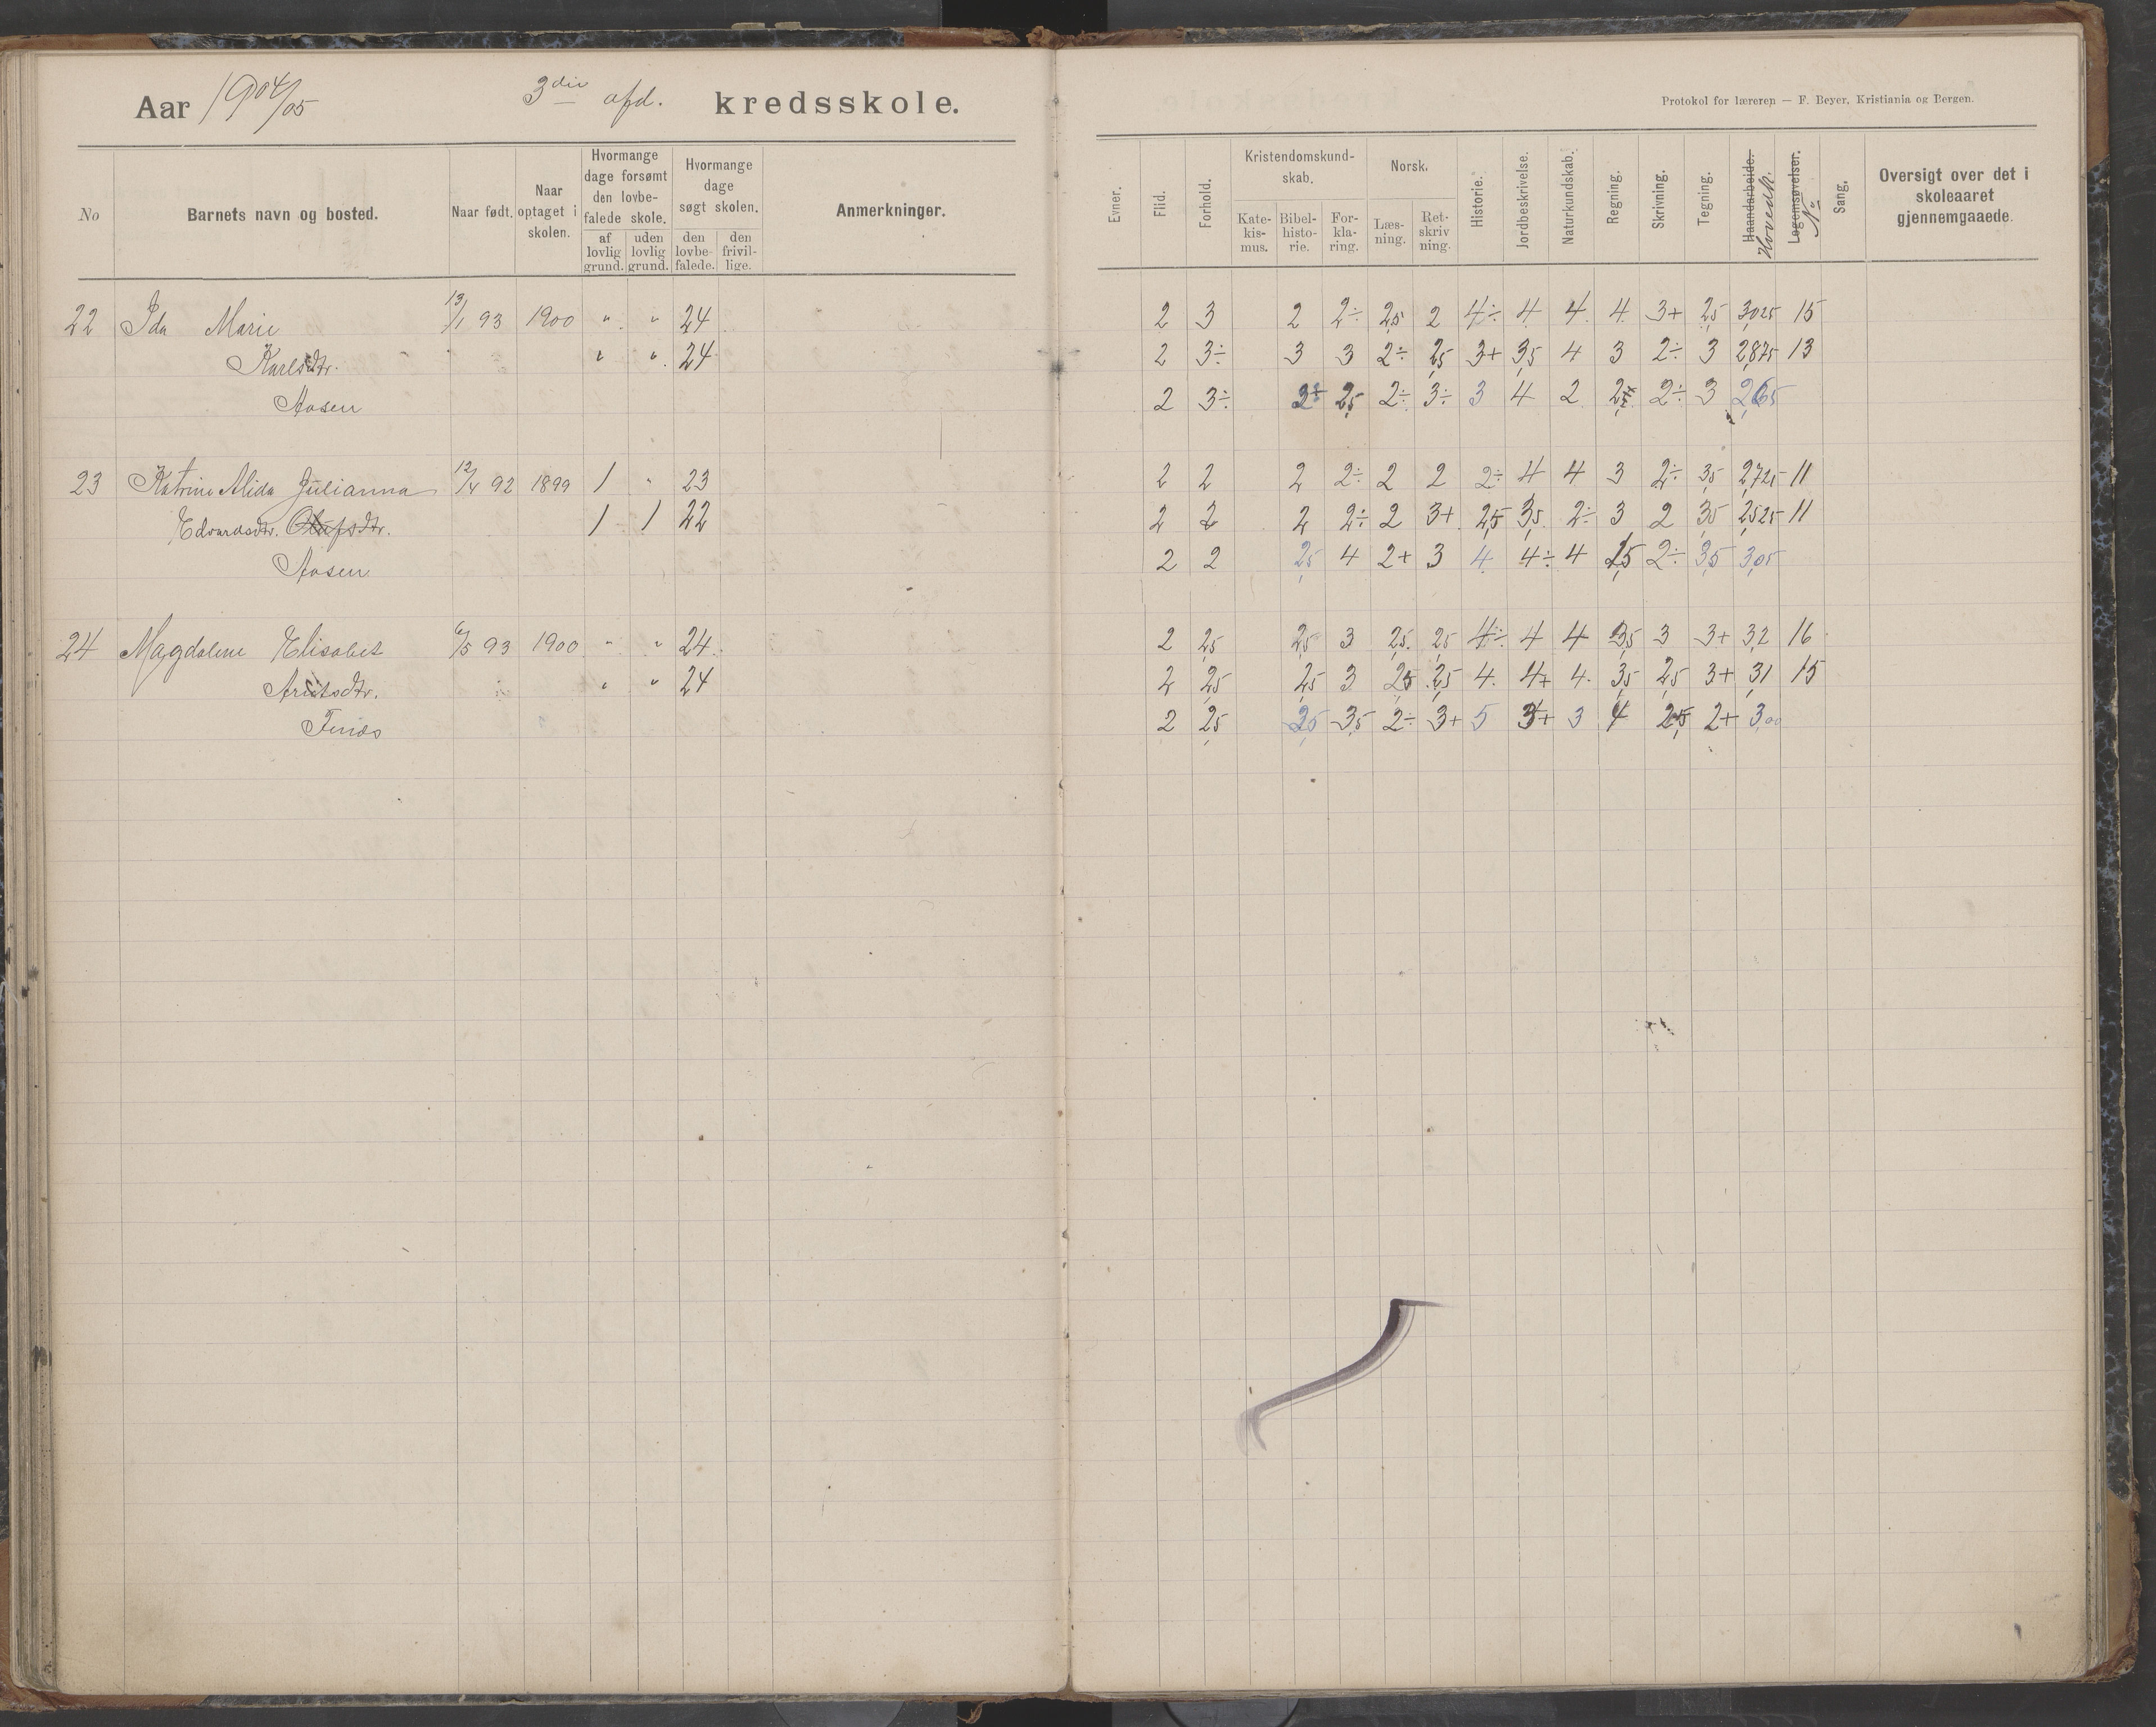 Aar 1904/05 3die afd. kredsskole.
Protokol for læreren — F. Beyer, Kristiania og Bergen.
No Barnets navn og bosted. Naar født. Naar optaget i skolen. Hvormange dage forsømt den lovbefalede skole. af lovlig grund. uden lovlig grund. Hvormange dage søgt skolen. den lovbefalede. den frivillige. Anmerkninger.
Evner. Flid. Forhold. Kristendomskundskab. Katekismus. Bibelhistorie. Forklaring. Norsk. Læsning. Retskrivning. Historie. Jordbeskrivelse. Naturkundskab. Regning. Skrivning. Tegning. Haandarbeide. Hovedk. Legemsøvelser. No Sang. Oversigt over det i skoleaaret gjennemgaaede.
22 Ida Marie 13/1 93 1900 " " 24 2 3 2 2÷ 2,5 2 4÷ 4 4 4 3+ 2,5 3,025 15
Karlsdtr. " " 24 2 3÷ 3 3 2÷ 2,5 3+ 3,5 4 3 2÷ 3 2,875 13
Aasen 2 3÷ 2,5 2÷ 3÷ 3 4 2 2÷ 3 2,65
23 Katrine Alida Julianna 12/4 92 1899 1 " 23 2 2 2 2÷ 2 2 2÷ 4 4 3 2÷ 3,5 2,725 11
Edvardsdtr. Olafsdtr. 1 1 22 2 2 2 2÷ 2 3+ 2,5 3,5 2÷ 3 2 3,5 2,525 11
Aasen 2 2 2,5 4 2+ 3 4 4÷ 4 2÷ 3,5 3,05
24 Magdalene Elisabet 6/5 93 1900 " " 24 2 2,5 2,5 3 2,5 2,5 4÷ 4 4 3,5 3 3+ 3,2 16
" " 24 2 2,5 2,5 3 2,5 2,5 4 4+ 4 3,5 2,5 3+ 3,1 15
2 2,5 2,5 3,5 2÷ 3+ 5 3+ 3 4 2,5 2+ 3,00